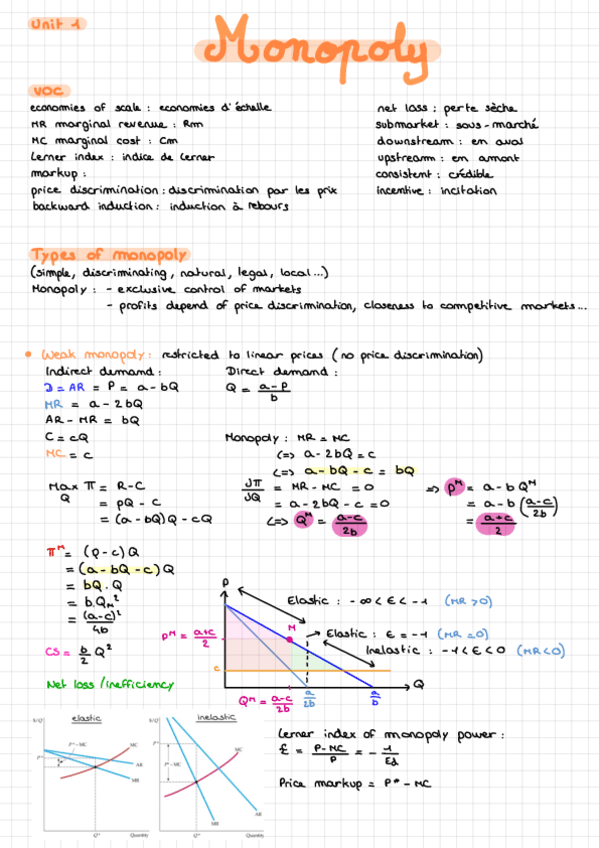 Unit 1
Monopoly
VOC
economies of scale : economies d'échelle
MR marginal revenue : Rm
MC marginal cost : Cm
Lerner index : indice de Lerner
markup :
price discrimination : discrimination par les prix
backward induction : induction à rebours
net loss : perte sèche
submarket : sous-marché
downstream : en aval
upstream : en amont
consistent : crédible
incentive : incitation
Types of monopoly
(simple, discriminating, natural, legal, local...)
Monopoly : - exclusive control of markets
- profits depend of price discrimination, closeness to competitive markets...
• Weak monopoly : restricted to linear prices (no price discrimination)
Indirect demand :
D = AR = P = a - bQ
MR = a - 2bQ
AR - MR = bQ
C = cQ
MC = c
Direct demand :
Q = (a-p)/b
Monopoly : MR = MC
(=) a - 2bQ = c
(=) a - bQ - c = bQ
Max π = R - C
Q
= pQ - c
= (a - bQ)Q - cQ
∂π/∂Q = MR - MC = 0
= a - 2bQ - c = 0
(=) Qᴹ = (a-c)/2b
=> pᴹ = a - b Qᴹ
= a - b((a-c)/2b)
= (a+c)/2
πᴹ = (p - c) Q
= (a - bQ - c) Q
= bQ . Q
= b. Qᴍ²
= (a-c)²/4b
CS = b/2 Q²
Net loss / inefficiency
P
Elastic : -∞ < ε < -1 (MR > 0)
M
pᴹ = (a+c)/2
Elastic : ε = -1 (MR = 0)
Inelastic : -1 < ε < 0 (MR < 0)
c
Q
Qᴹ = (a-c)/2b
a/2b
a/b
elastic
$/Q
P*
P* - MC
MC
AR
MR
Q*
Quantity
inelastic
$/Q
P*
P* - MC
MC
AR
MR
Q*
Quantity
Lerner index of monopoly power :
£ = (P-MC)/P = - 1/Ed
Price markup = P* - MC